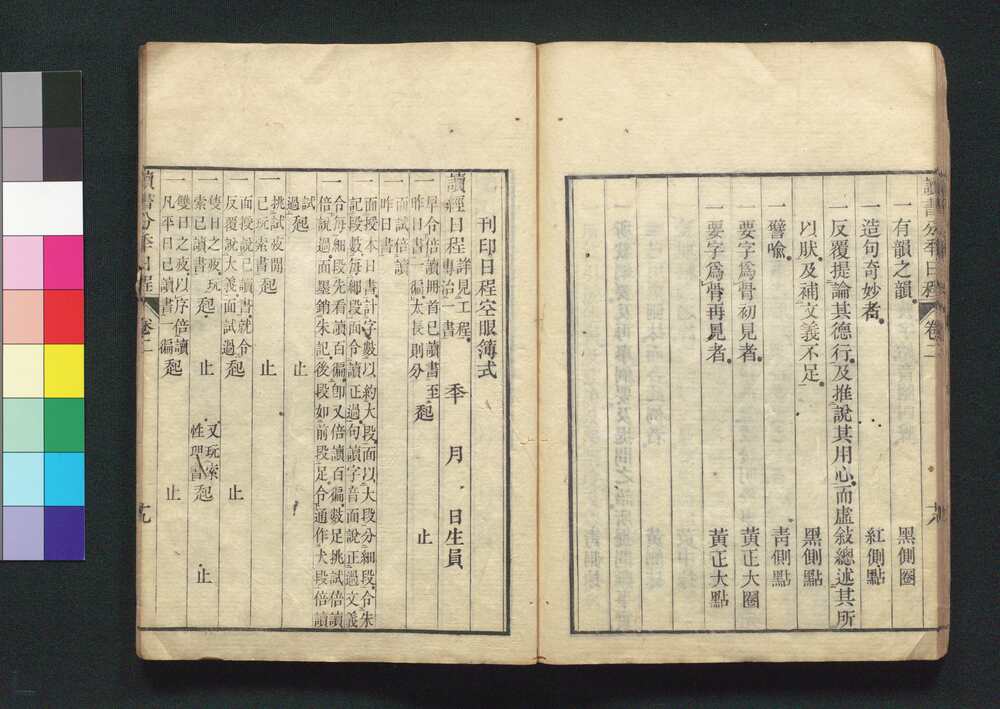 一有韻之韻 黑側圈
一造句奇妙者 紅側點
一反覆提論其德行及推說其用心而虛敍總述其所
以狀及補文義不足 黑側點
一譬喩 青側點
一要字爲骨初見者 黃正大圈
一要字爲骨再見者 黃正大點
刊印日程空眼簿式
讀經日程詳見工程專治一書 年 月 日生員
一早令倍讀冊首已讀書至
昨日書一徧太長則分 起 止
一面試倍讀
昨日書
一面授本日書計字數以約大段面以大段分細段令朱
記段數每細段面令讀正過句讀字音面說正過文義
令每細段先看讀百徧卽又倍讀百徧數足挑試倍讀
倍說過面墨銷朱記後段如前段足令通作大段倍讀
試過 起 止
一挑試夜間
已玩索書 起 止
一面授說已讀書就令
反覆說大義面試過 起 止
一隻日之夜玩
索已讀書 起 止 又玩索
性理書 起 止
一雙日之夜以序倍讀
凡平日已讀書一徧 起 止
讀書分年日程 卷二